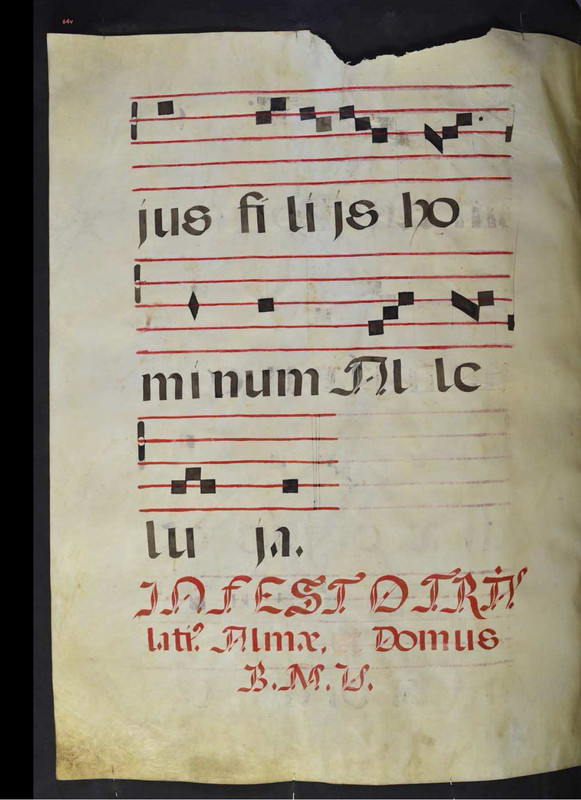 64v
jus fi li js ho
mi num Al le
lu ja.
IN FESTO TRÃs
lati? Almæ, Domus
B. M. V.